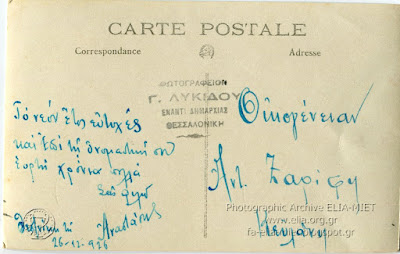 CARTE POSTALE
Correspondance
Adresse
ΦΩΤΟΓΡΑΦΕΙΟΝ
Γ. ΛΥΚΙΔΟΥ
ΕΝΑΝΤΙ ΔΗΜΑΡΧΙΑΣ
ΘΕΣΣΑΛΟΝΙΚΗ
Τὸ νέον ἔτος εὐτυχές
καὶ ἐπὶ τῇ ὀνομαστικῇ σου
ἑορτῇ χρόνια πολλά
Σᾶς φιλῶ
Ἀναστάσης
26-12-926
Οἰκογένειαν
Ἀντ. Ζαρίφη
Photographic Archive ELIA-MIET
www.elia.org.gr